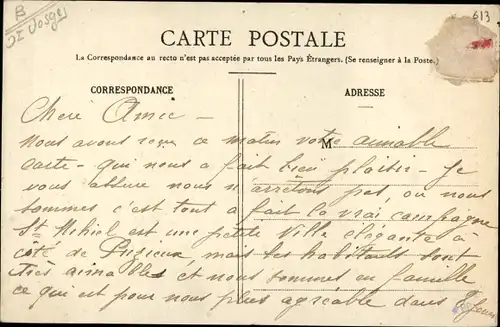 B
DI Vosges
613
CARTE POSTALE
La Correspondance au recto n'est pas acceptée par tous les Pays Étrangers. (Se renseigner à la Poste.)
CORRESPONDANCE
ADRESSE
M
Chère Amie –
nous avons reçu ce matin votre aimable
carte – qui nous a fait bien plaisir – Je
vous assure nous n'arrêtons pas, où nous
sommes c'est tout a fait la vrai campagne
St Mihiel est une petite Ville élégante à
côté de mais les habitants sont
très aimables et nous sommes en famille
ce qui est pour nous plus agréable dans